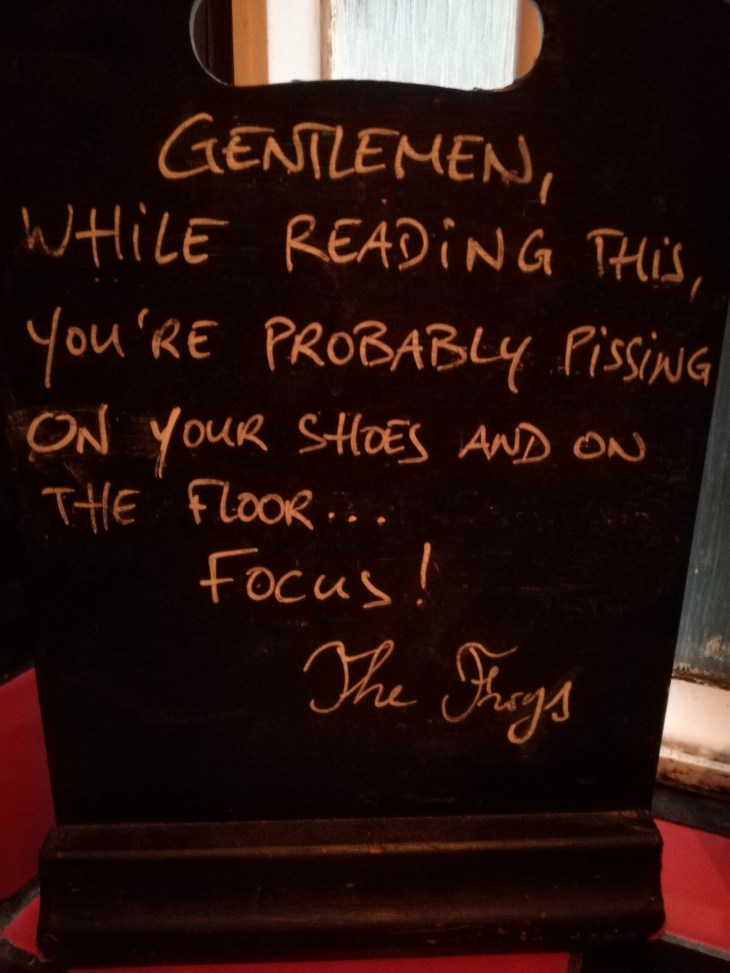 GENTLEMEN,
WHILE READING THIS,
YOU'RE PROBABLY PISSING
ON YOUR SHOES AND ON
THE FLOOR...
FOCUS!
The Frogs